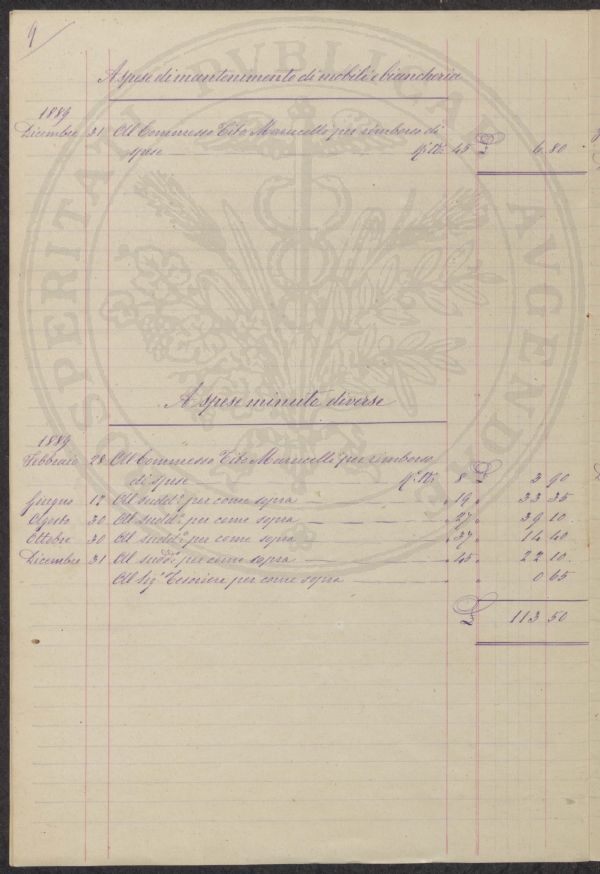 9
A spese di mantenimento di mobili e biancheria
1889
Dicembre 31 Al Commesso Tito Marucelli per rimborso di
spese 45 £ 6 80
A spese minute diverse
1889
Febbraio 28 Al Commesso Tito Marucelli per rimborso
di spese 8 £ 3 90
Giugno 12 Al sudd.º per come sopra " 19 " 33 35
Agosto 30 Al sudd.º per come sopra " 27 " 39 10
Ottobre 30 Al sudd.º per come sopra " 37 " 14 40
Dicembre 31 Al sudd.º per come sopra " 45 " 22 10
Al Sig.r Tesoriere per come sopra " " 0 65
£ 113 50
PROSPERITATI PVBLICAE AVGENDAE